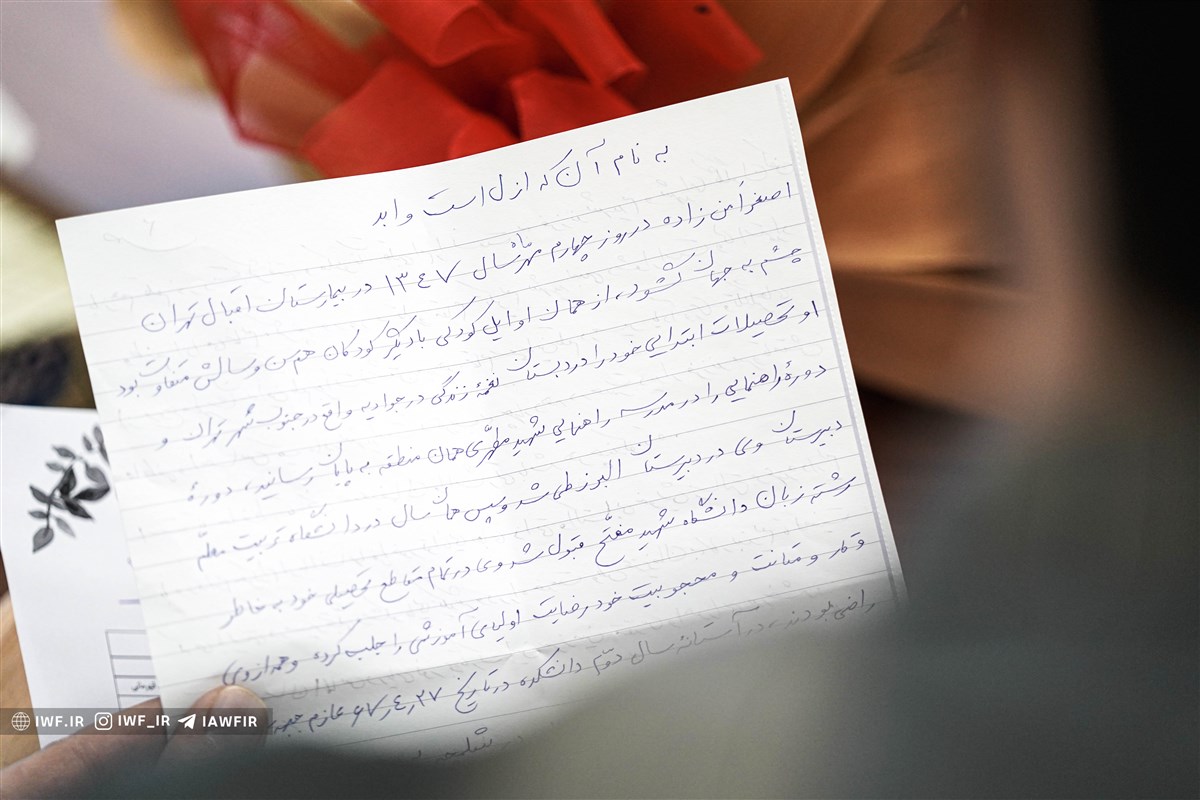 به نام آن که ازل است و ابد
اصغر امن زاده در روز چهارم مهر سال ۱۳۴۷ در بیمارستان اقبال تهران
چشم به جهان گشود، از همان اوایل کودکی با دیگر کودکان هم سن و سالش متفاوت بود
او تحصیلات ابتدایی خود را در دبستان نغمهٔ زندگی در جوادیه واقع در جنوب شهر تهران و
دورهٔ راهنمایی را در مدرسه راهنمایی شهید مطهّری همان منطقه به پایان رسانید، دورهٔ
دبیرستان وی در دبیرستان البرز طی شد و سپس همان سال در دانشگاه تربیت معلّم
رشته زبان دانشگاه شهید مفتّح قبول شد وی در تمام مقاطع تحصیلی خود به خاطر
وقار و متانت و محجوبیت خود رضایت اولیای آموزشی را جلب کرده و همه از وی
راضی بودند، در آستانهٔ سال دوّم دانشکده در تاریخ ۶۷٫۴٫۲۷ عازم جبهه
شلمچه
IWF.IR IWF_IR IAWFIR